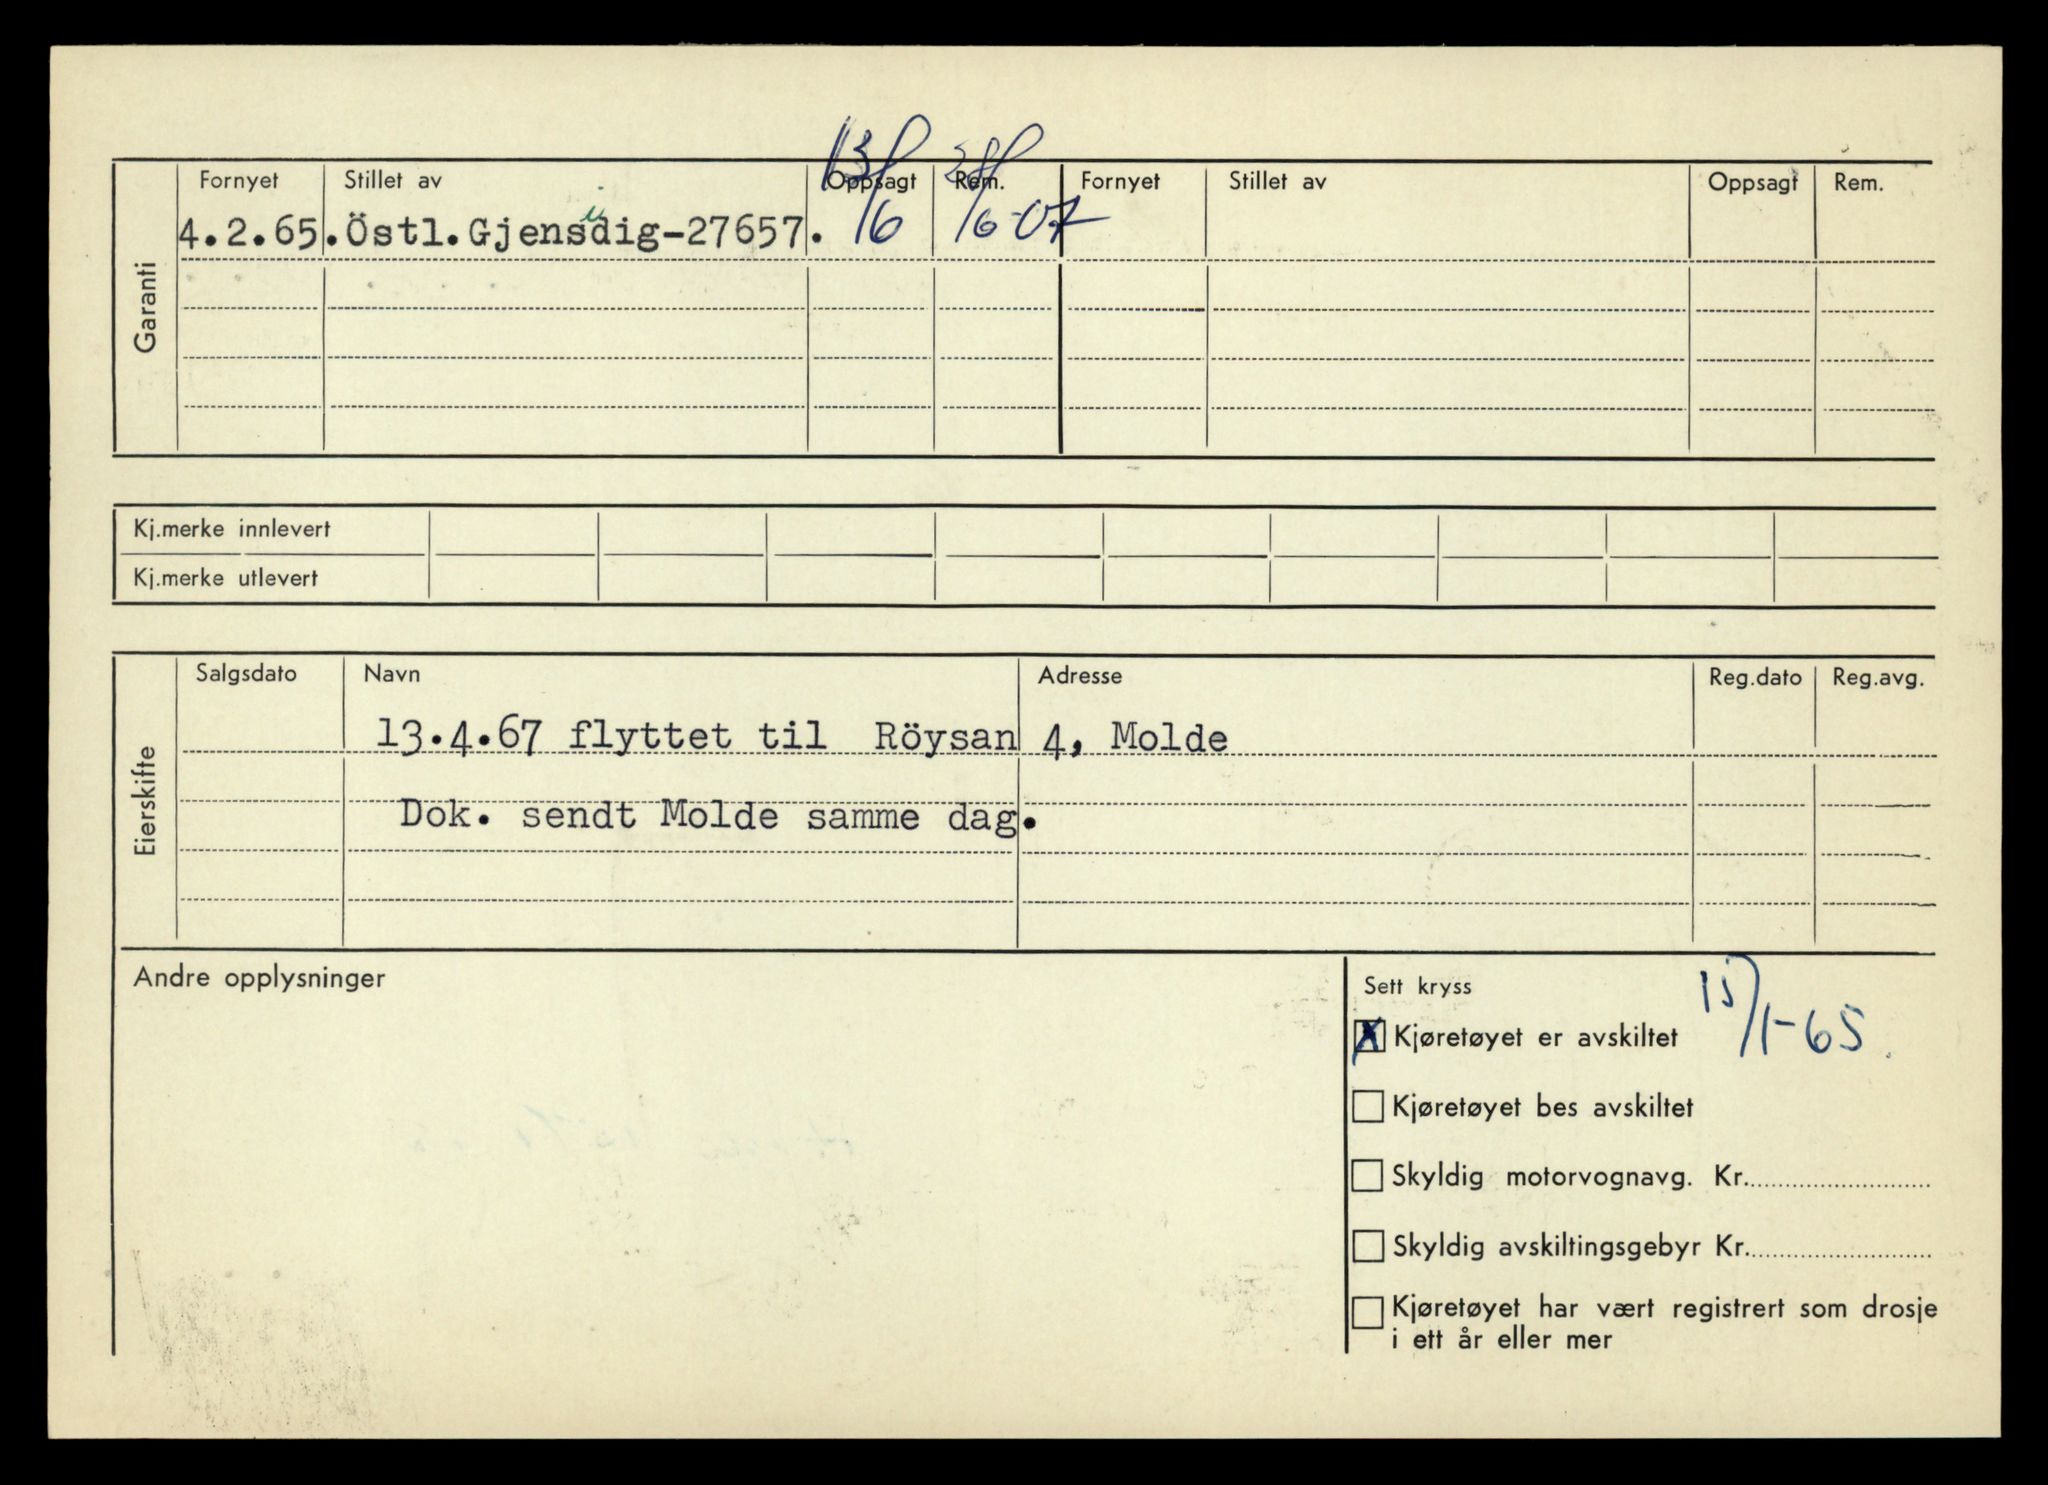 Garanti
Fornyet Stillet av Oppsagt Rem. Fornyet Stillet av Oppsagt Rem.
4.2.65. Östl.Gjensidig-27657. 13/6 28/6-07
Kj.merke innlevert
Kj.merke utlevert
Eierskifte
Salgsdato Navn Adresse Reg.dato Reg.avg.
13.4.67 flyttet til Röysan 4, Molde
Dok. sendt Molde samme dag.
Andre opplysninger
Sett kryss
X Kjøretøyet er avskiltet 15/1-65.
Kjøretøyet bes avskiltet
Skyldig motorvognavg. Kr.
Skyldig avskiltingsgebyr Kr.
Kjøretøyet har vært registrert som drosje
i ett år eller mer